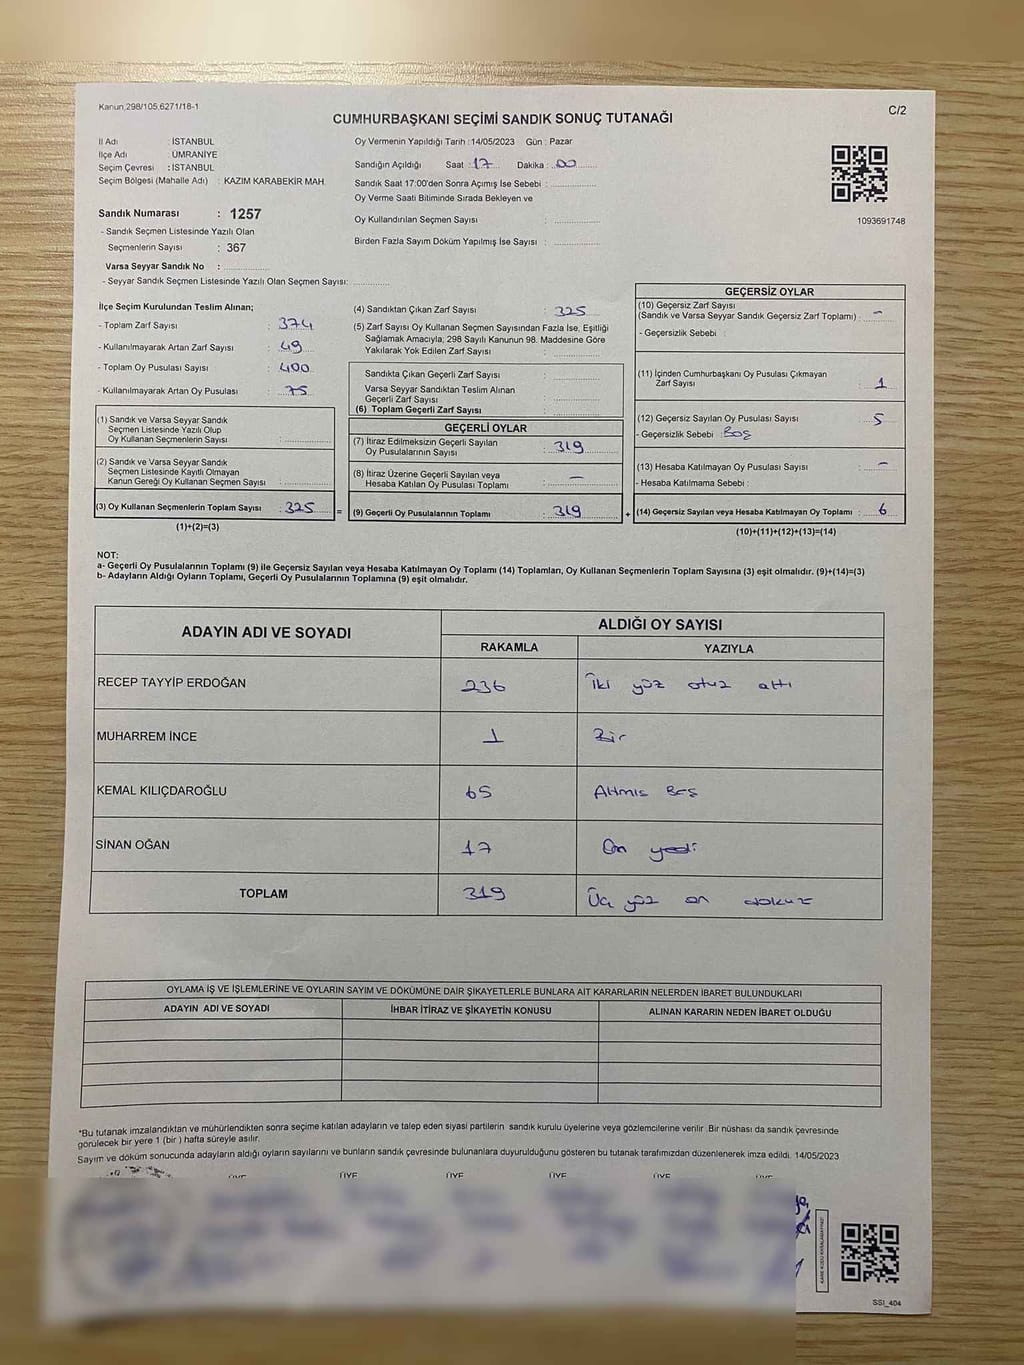 Kanun,298/105,6271/18-1
C/2
CUMHURBAŞKANI SEÇİMİ SANDIK SONUÇ TUTANAĞI
İl Adı : İSTANBUL
İlçe Adı : ÜMRANİYE
Seçim Çevresi : İSTANBUL
Seçim Bölgesi (Mahalle Adı) : KAZIM KARABEKİR MAH.
Sandık Numarası : 1257
- Sandık Seçmen Listesinde Yazılı Olan
Seçmenlerin Sayısı : 367
Varsa Seyyar Sandık No : ..............
- Seyyar Sandık Seçmen Listesinde Yazılı Olan Seçmen Sayısı: ............
Oy Vermenin Yapıldığı Tarih :14/05/2023 Gün : Pazar
Sandığın Açıldığı Saat : 17 Dakika : 00
Sandık Saat 17:00'den Sonra Açımış İse Sebebi : ..............
Oy Verme Saati Bitiminde Sırada Bekleyen ve
Oy Kullandırılan Seçmen Sayısı : ..............
Birden Fazla Sayım Döküm Yapılmış İse Sayısı : ..............
1093691748
İlçe Seçim Kurulundan Teslim Alınan;
- Toplam Zarf Sayısı : 374
- Kullanılmayarak Artan Zarf Sayısı : 49
- Toplam Oy Pusulası Sayısı : 400
- Kullanılmayarak Artan Oy Pusulası : 75
(1) Sandık ve Varsa Seyyar Sandık
Seçmen Listesinde Yazılı Olup
Oy Kullanan Seçmenlerin Sayısı : ..............
(2) Sandık ve Varsa Seyyar Sandık
Seçmen Listesinde Kayıtlı Olmayan
Kanun Gereği Oy Kullanan Seçmen Sayısı : ..............
(3) Oy Kullanan Seçmenlerin Toplam Sayısı : 325
(1)+(2)=(3)
=
(4) Sandıktan Çıkan Zarf Sayısı : 325
(5) Zarf Sayısı Oy Kullanan Seçmen Sayısından Fazla İse, Eşitliği
Sağlamak Amacıyla, 298 Sayılı Kanunun 98. Maddesine Göre
Yakılarak Yok Edilen Zarf Sayısı : ..............
Sandıkta Çıkan Geçerli Zarf Sayısı : ..............
Varsa Seyyar Sandıktan Teslim Alınan
Geçerli Zarf Sayısı : ..............
(6) Toplam Geçerli Zarf Sayısı : ..............
GEÇERLİ OYLAR
(7) İtiraz Edilmeksizin Geçerli Sayılan
Oy Pusulalarının Sayısı : 319
(8) İtiraz Üzerine Geçerli Sayılan veya
Hesaba Katılan Oy Pusulası Toplamı : –
(9) Geçerli Oy Pusulalarının Toplamı : 319
+
GEÇERSİZ OYLAR
(10) Geçersiz Zarf Sayısı
(Sandık ve Varsa Seyyar Sandık Geçersiz Zarf Toplamı) : –
- Geçersizlik Sebebi :
(11) İçinden Cumhurbaşkanı Oy Pusulası Çıkmayan
Zarf Sayısı : 1
(12) Geçersiz Sayılan Oy Pusulası Sayısı : 5
- Geçersizlik Sebebi : Boş
(13) Hesaba Katılmayan Oy Pusulası Sayısı : –
- Hesaba Katılmama Sebebi :
(14) Geçersiz Sayılan veya Hesaba Katılmayan Oy Toplamı : 6
(10)+(11)+(12)+(13)=(14)
NOT:
a- Geçerli Oy Pusulalarının Toplamı (9) ile Geçersiz Sayılan veya Hesaba Katılmayan Oy Toplamı (14) Toplamları, Oy Kullanan Seçmenlerin Toplam Sayısına (3) eşit olmalıdır. (9)+(14)=(3)
b- Adayların Aldığı Oyların Toplamı, Geçerli Oy Pusulalarının Toplamına (9) eşit olmalıdır.
ADAYIN ADI VE SOYADI
ALDIĞI OY SAYISI
RAKAMLA YAZIYLA
RECEP TAYYİP ERDOĞAN 236 İki yüz otuz altı
MUHARREM İNCE 1 Bir
KEMAL KILIÇDAROĞLU 65 Altmıs Beş
SİNAN OĞAN 17 On yedi
TOPLAM 319 Üç yüz on dokuz
OYLAMA İŞ VE İŞLEMLERİNE VE OYLARIN SAYIM VE DÖKÜMÜNE DAİR ŞİKAYETLERLE BUNLARA AİT KARARLARIN NELERDEN İBARET BULUNDUKLARI
ADAYIN ADI VE SOYADI İHBAR İTİRAZ VE ŞİKAYETİN KONUSU ALINAN KARARIN NEDEN İBARET OLDUĞU
*Bu tutanak imzalandıktan ve mühürlendikten sonra seçime katılan adayların ve talep eden siyasi partilerin sandık kurulu üyelerine veya gözlemcilerine verilir .Bir nüshası da sandık çevresinde
görülecek bir yere 1 (bir ) hafta süreyle asılır.
Sayım ve döküm sonucunda adayların aldığı oyların sayılarını ve bunların sandık çevresinde bulunanlara duyurulduğunu gösteren bu tutanak tarafımızdan düzenlenerek imza edildi. 14/05/2023
ÜYE ÜYE ÜYE ÜYE ÜYE ÜYE
SSI_404